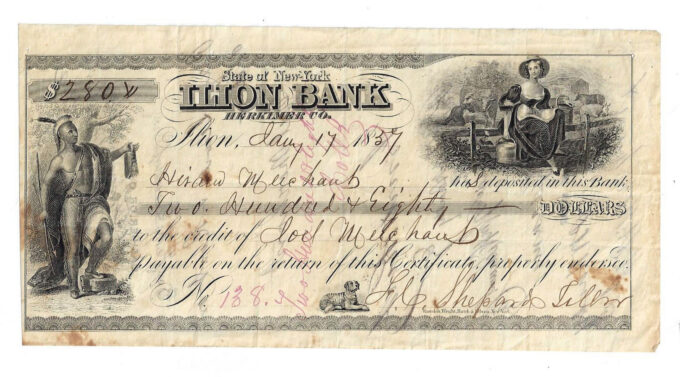 $ 280
State of New-York
ILION BANK
HERKIMER CO.
Ilion, Jany 17 1857
Hiram Merchant has deposited in this Bank
Two Hundred & Eighty DOLLARS
to the credit of Joel Merchant
payable on the return of this Certificate, properly endorsed.
No 138. F. C. Shepard Teller